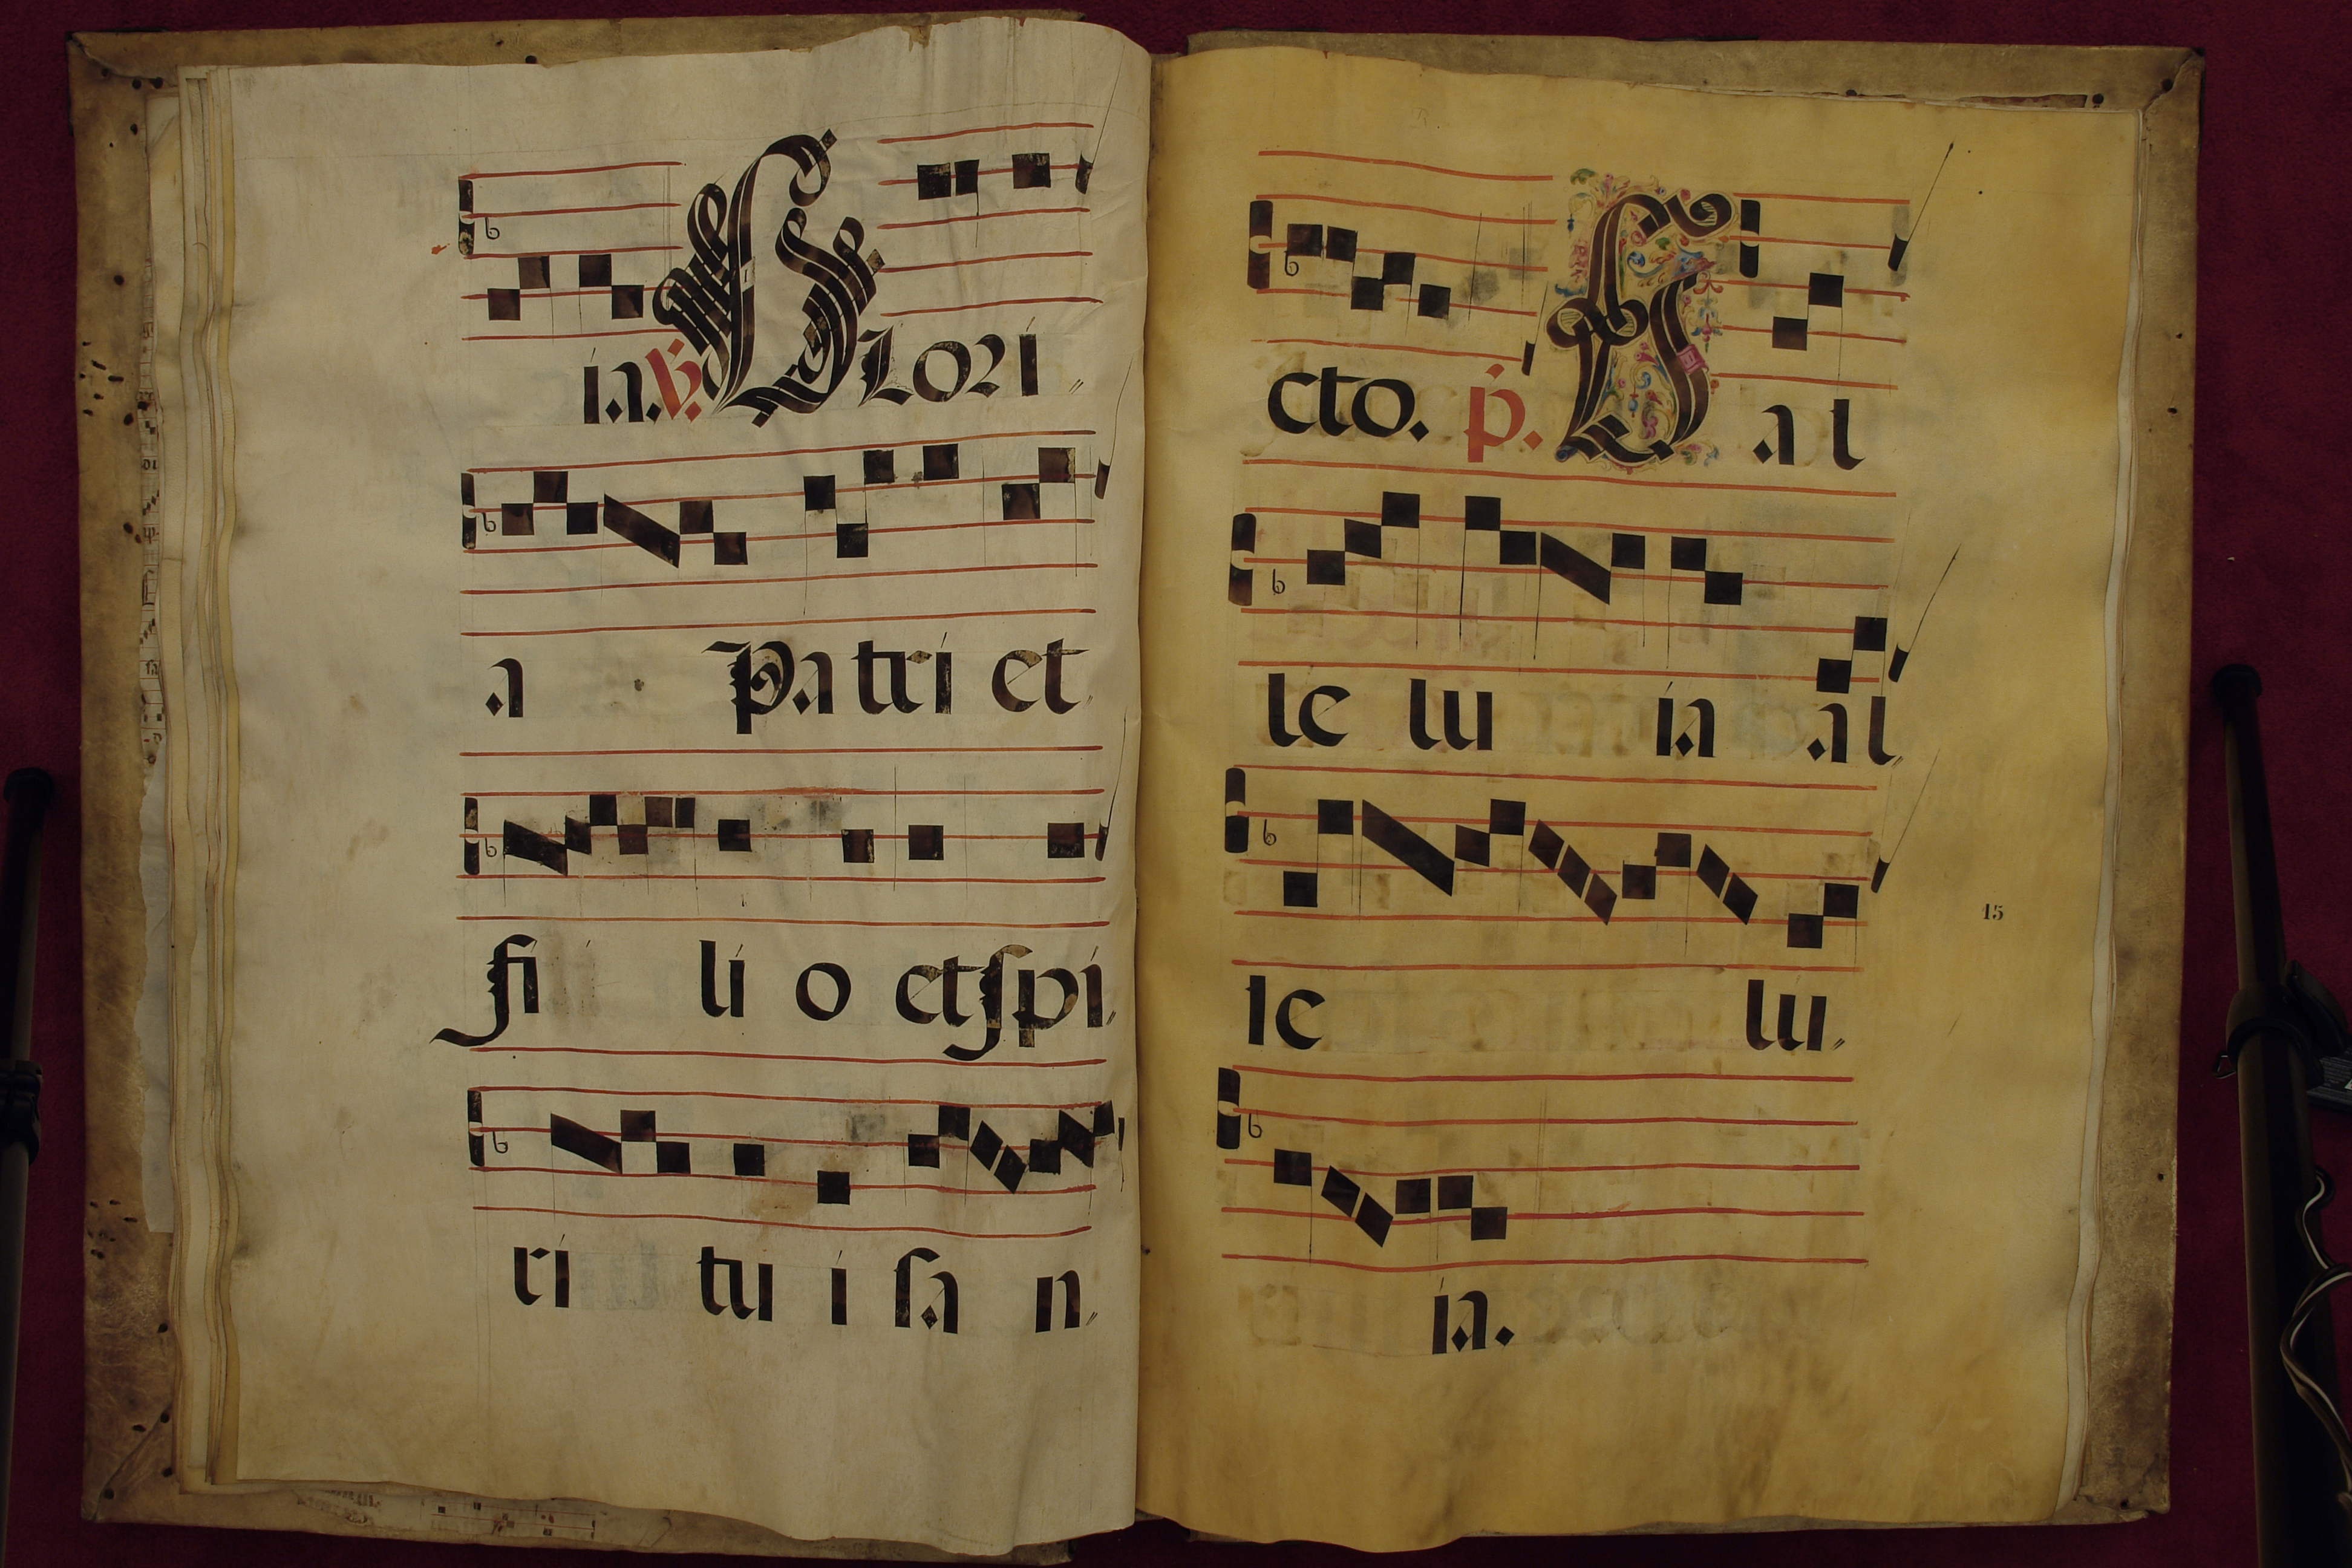 ia. V. Glori
a Patri et
fi li o et spi
ri tu i sa n
cto. p. A al
le lu ia al
le lu
ia.
15